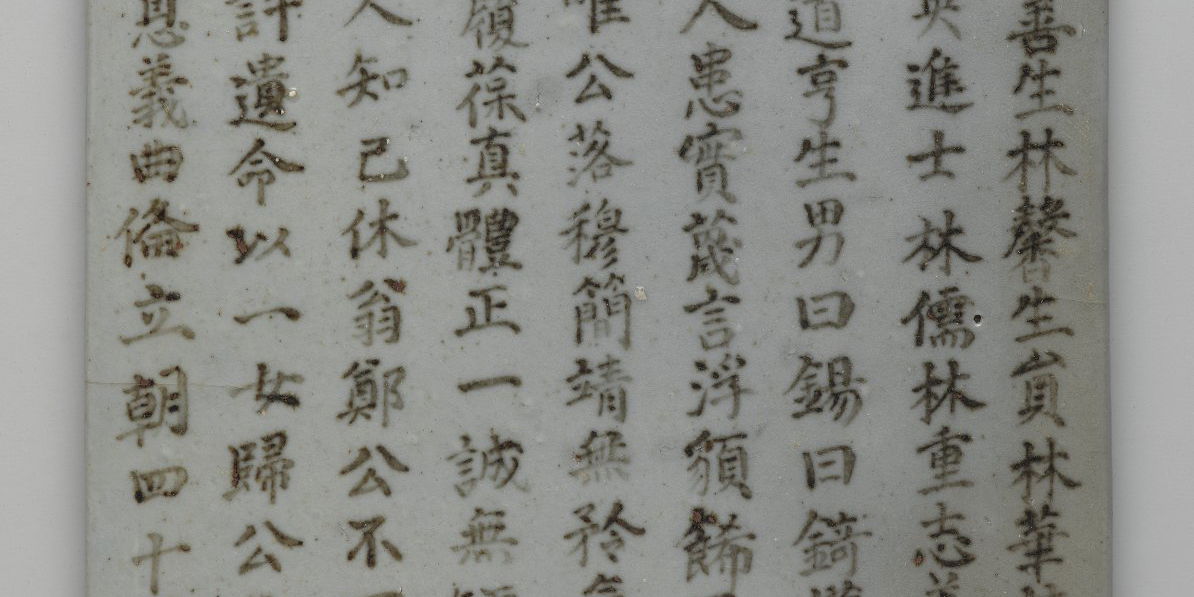 善生林馨生貟林華
進士林儒林重志
道亨生男曰錫曰錡
人患實蔑言浮䫉餙
唯公落穆簡靖無矜
履葆真體正一誠無
人知己休翁鄭公不
許遺命以一女歸公
息義曲倫立朝四十